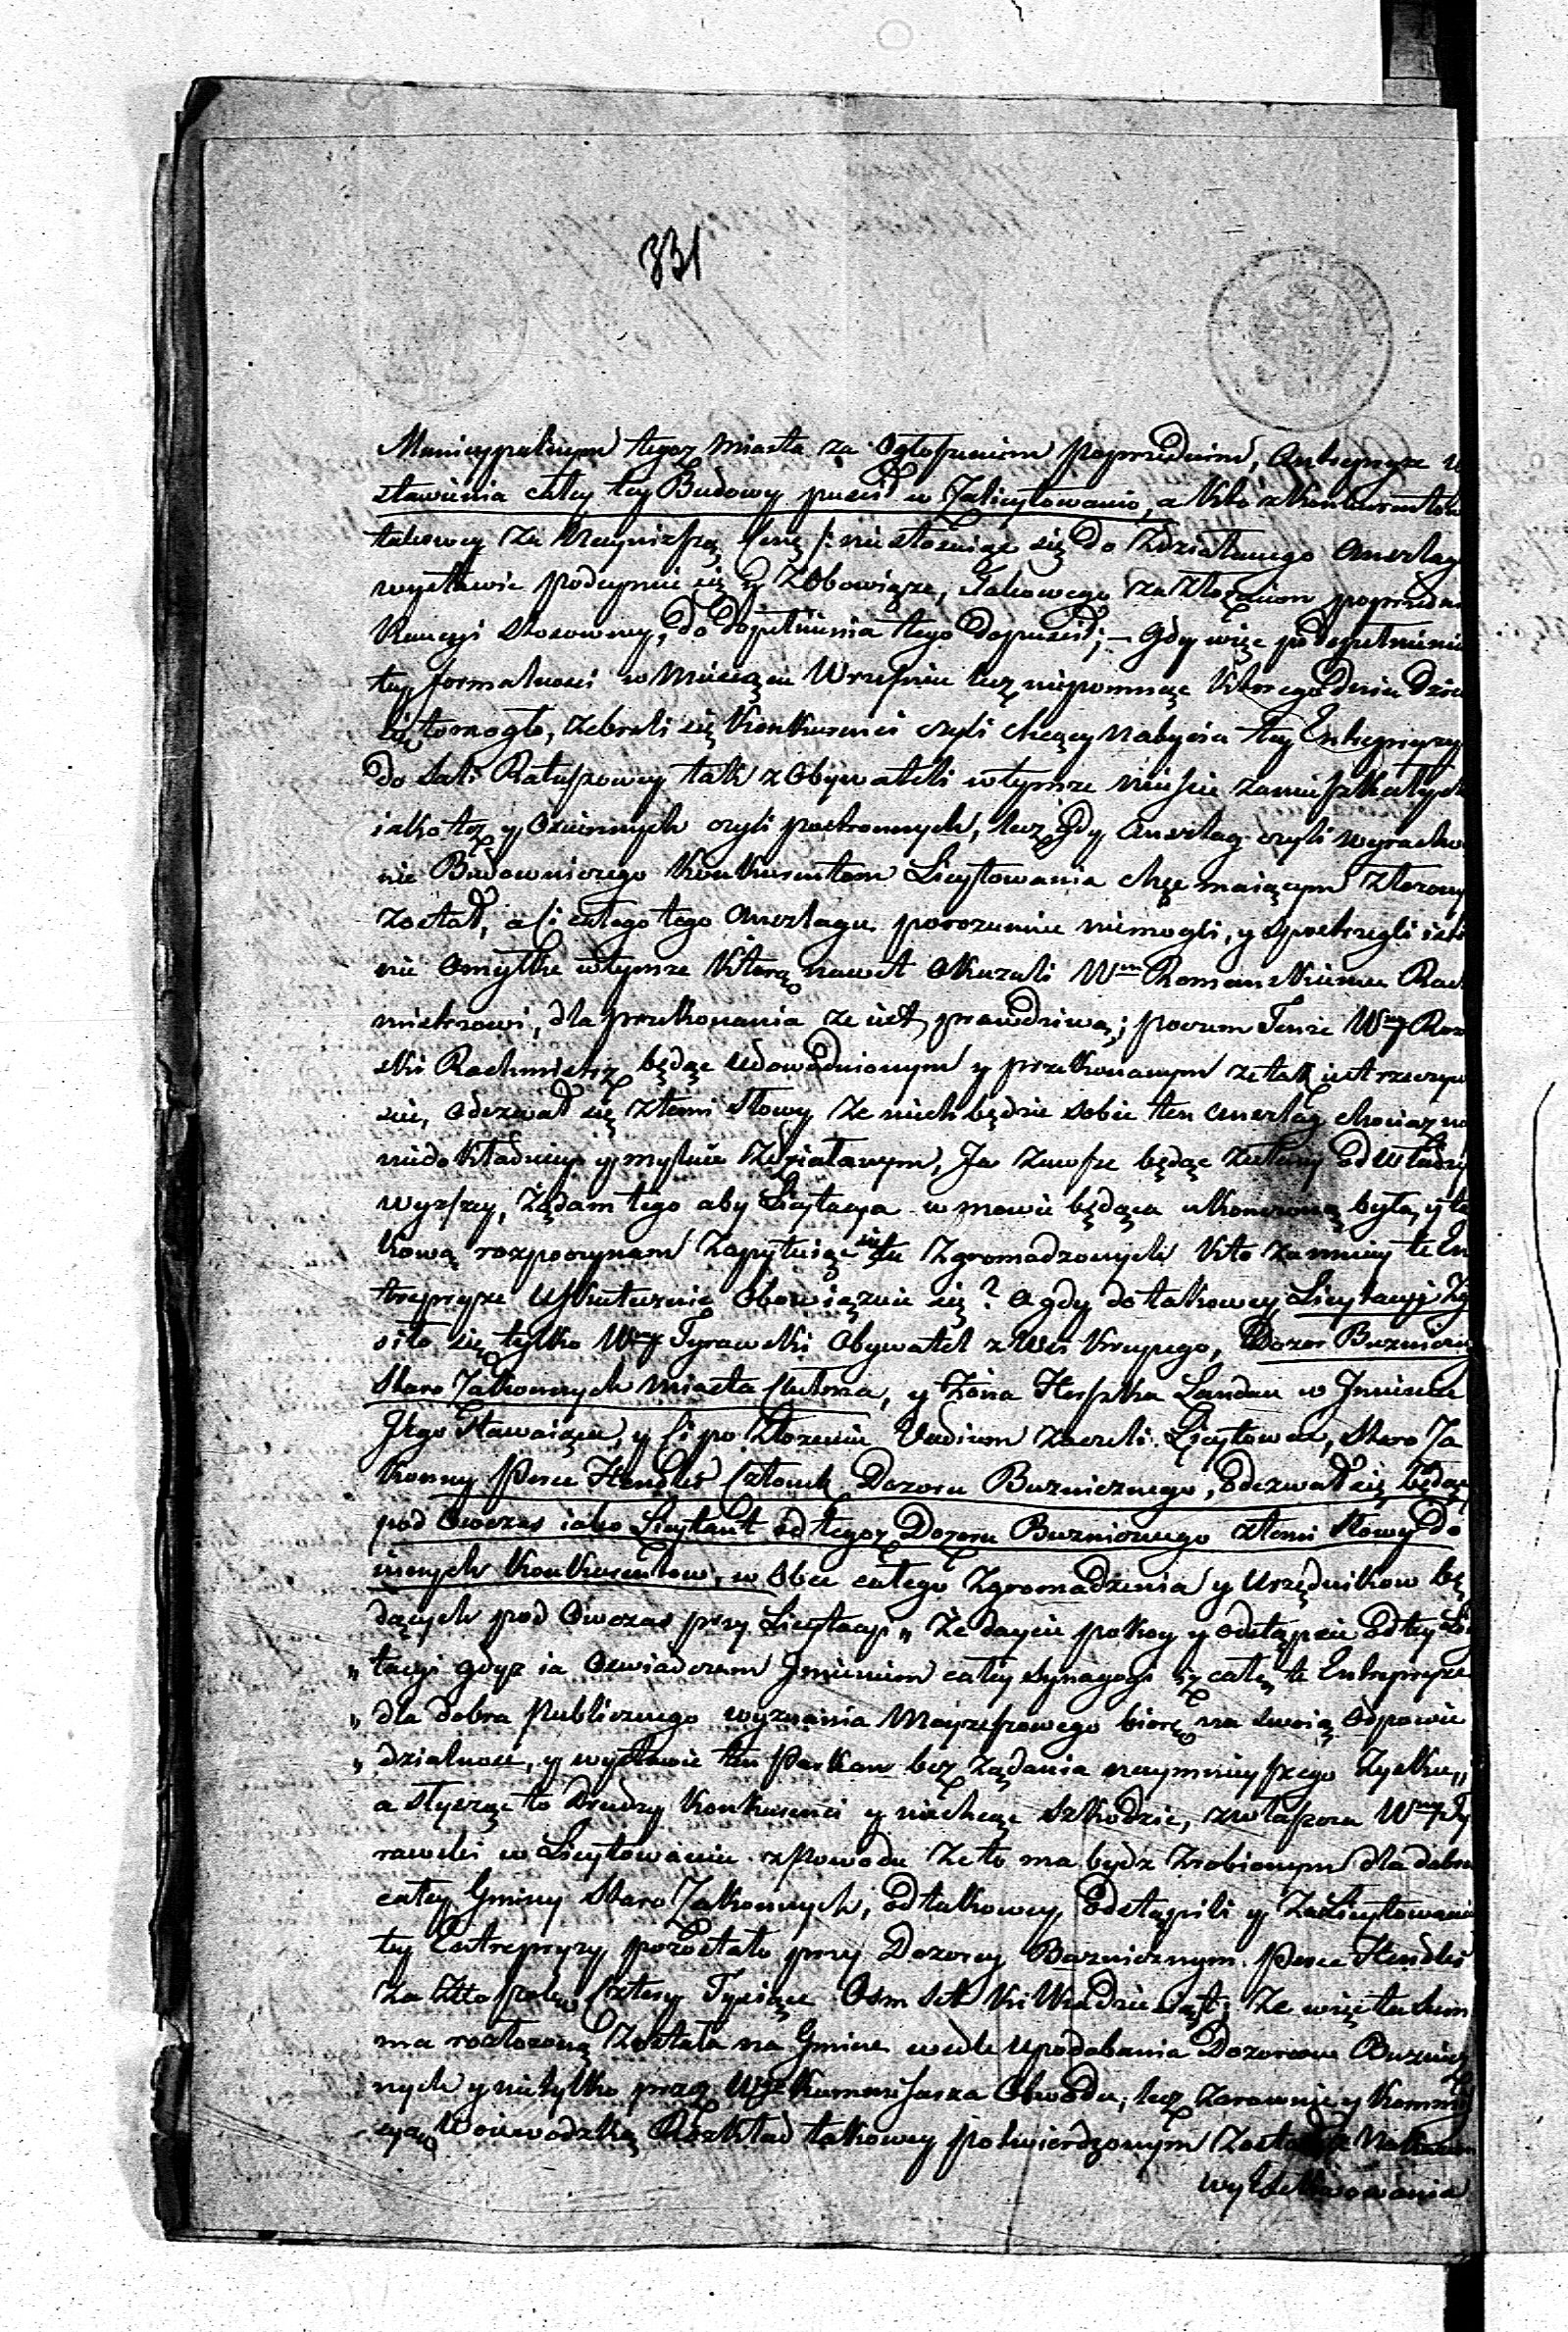 331
Municypalnym tegoż Miasta za Ogłoszeniem poprzednim, Antrepryze
stawienia całey tey Budowy puścił w Zalicytowanie, a kto z konkurentów
takowey za Naynizszą Cenę /: niestosuiąc się do zdziałanego Anszlag
wystawić podeymie się y zobowiąże, takowego za złożeniem poprzedni
Kaucyi stosowney, do dopełnienia tego dopuścił; – Gdy więc po dopełnieniu
tey formalności w Miesiącu Wrześniu lecz niepomnąc którego dnia dzia
ło się to mogło, zebrali się Konkurenci czyli chcący Nabycia tey Entrepryzy
do Sali Ratuszowey tak z Obywateli w tymże Mieście zamieszkałych
iako też y Ościennych czyli postronnych, lecz gdy Anszlag czyli wyracho
nie Budowniczego Konkurentom Licytowania chęć maiącym złożony
został, a Ci całego tego Anszlagu porozumieć niemogli, y spostrzegli
nie Omyłkę w tymże którą nawet Okazali Wmu Romanskiemu Rach
mistrzowi, dla przekonania że iest prawdziwą; poczem Tenże Wny Rom
ski Rachmistrz będąc udowodnionym y przekonanym że tak iest rzeczyw
ście, Odezwał się z temi słowy że niech będzie sobie ten Anszlag chociaż
niedokładniey y mylnie zdziałanym, Ja zawsze będąc zesłany Od Władzy
wyższey, żądam tego aby Licytacya w mowie będąca ukończoną była, y ta
kową rozpoczynam zapytuiąc się tu zgromadzonych kto za mniey te En
trepryze Uskutecznić Obowiązuie się? A gdy do takowey Licytacyi Zg
siło się tylko Wny Tyrawski Obywatel z Wsi Krupego, Dozor Buzniczy
Staro Zakonnych Miasta , y Żona Herszka Landau w Jmieniu
Jego Stawaiąca, y Ci po złożeniu Vadium zaczeli Licytować, Staro Za
konny Perec Hendler Członek Dozoru Buzniczego, Odezwał się będąc
pod Owczas iako Licytant od tegoż Dozoru Buzniczego z temi słowy do
innych Konkurentow, w Obec całego Zgromadzenia y Urzędnikow bę
dących pod Owczas przy Licytacyi „ Że daycie pokoy y odstąpcie Od tey Li
„ tacyi gdyż ia Oswiadczam Jmieniem całey Synagogi iż całą te Entrepryze
„ dla dobra Publicznego wyznania Mayżeszowego biorę na swoią Odpowie
„ dzialność, y wystawie ten Parkan bez żądania naymnieyszego Zysku „
a słysząc to Drudzy Konkurenci y niechcąc szkodzić, zwłaszcza Wny Ty
rawski w Licytowaniu z Powodu że to ma bydź zrobionym dla dobra
całey Gminy Staro Zakonnych, Od takowey Odstąpili y Zalicytowanie
tey Entrepryzy pozostało przy Dozorcy Buznicznym Perec Hendler
za Złto polsw Cztery Tysiące Osm set ; Że więc ta Sum
ma rozłożoną Została na Gminę wedle upodobania Dozorcow Buznicz
nych y nietylko przez WJX Kommissarza Obwodu, lecz zarownie y Kommis
syą Woiewodzką Rozkład takowey potwierdzonym Został
wy